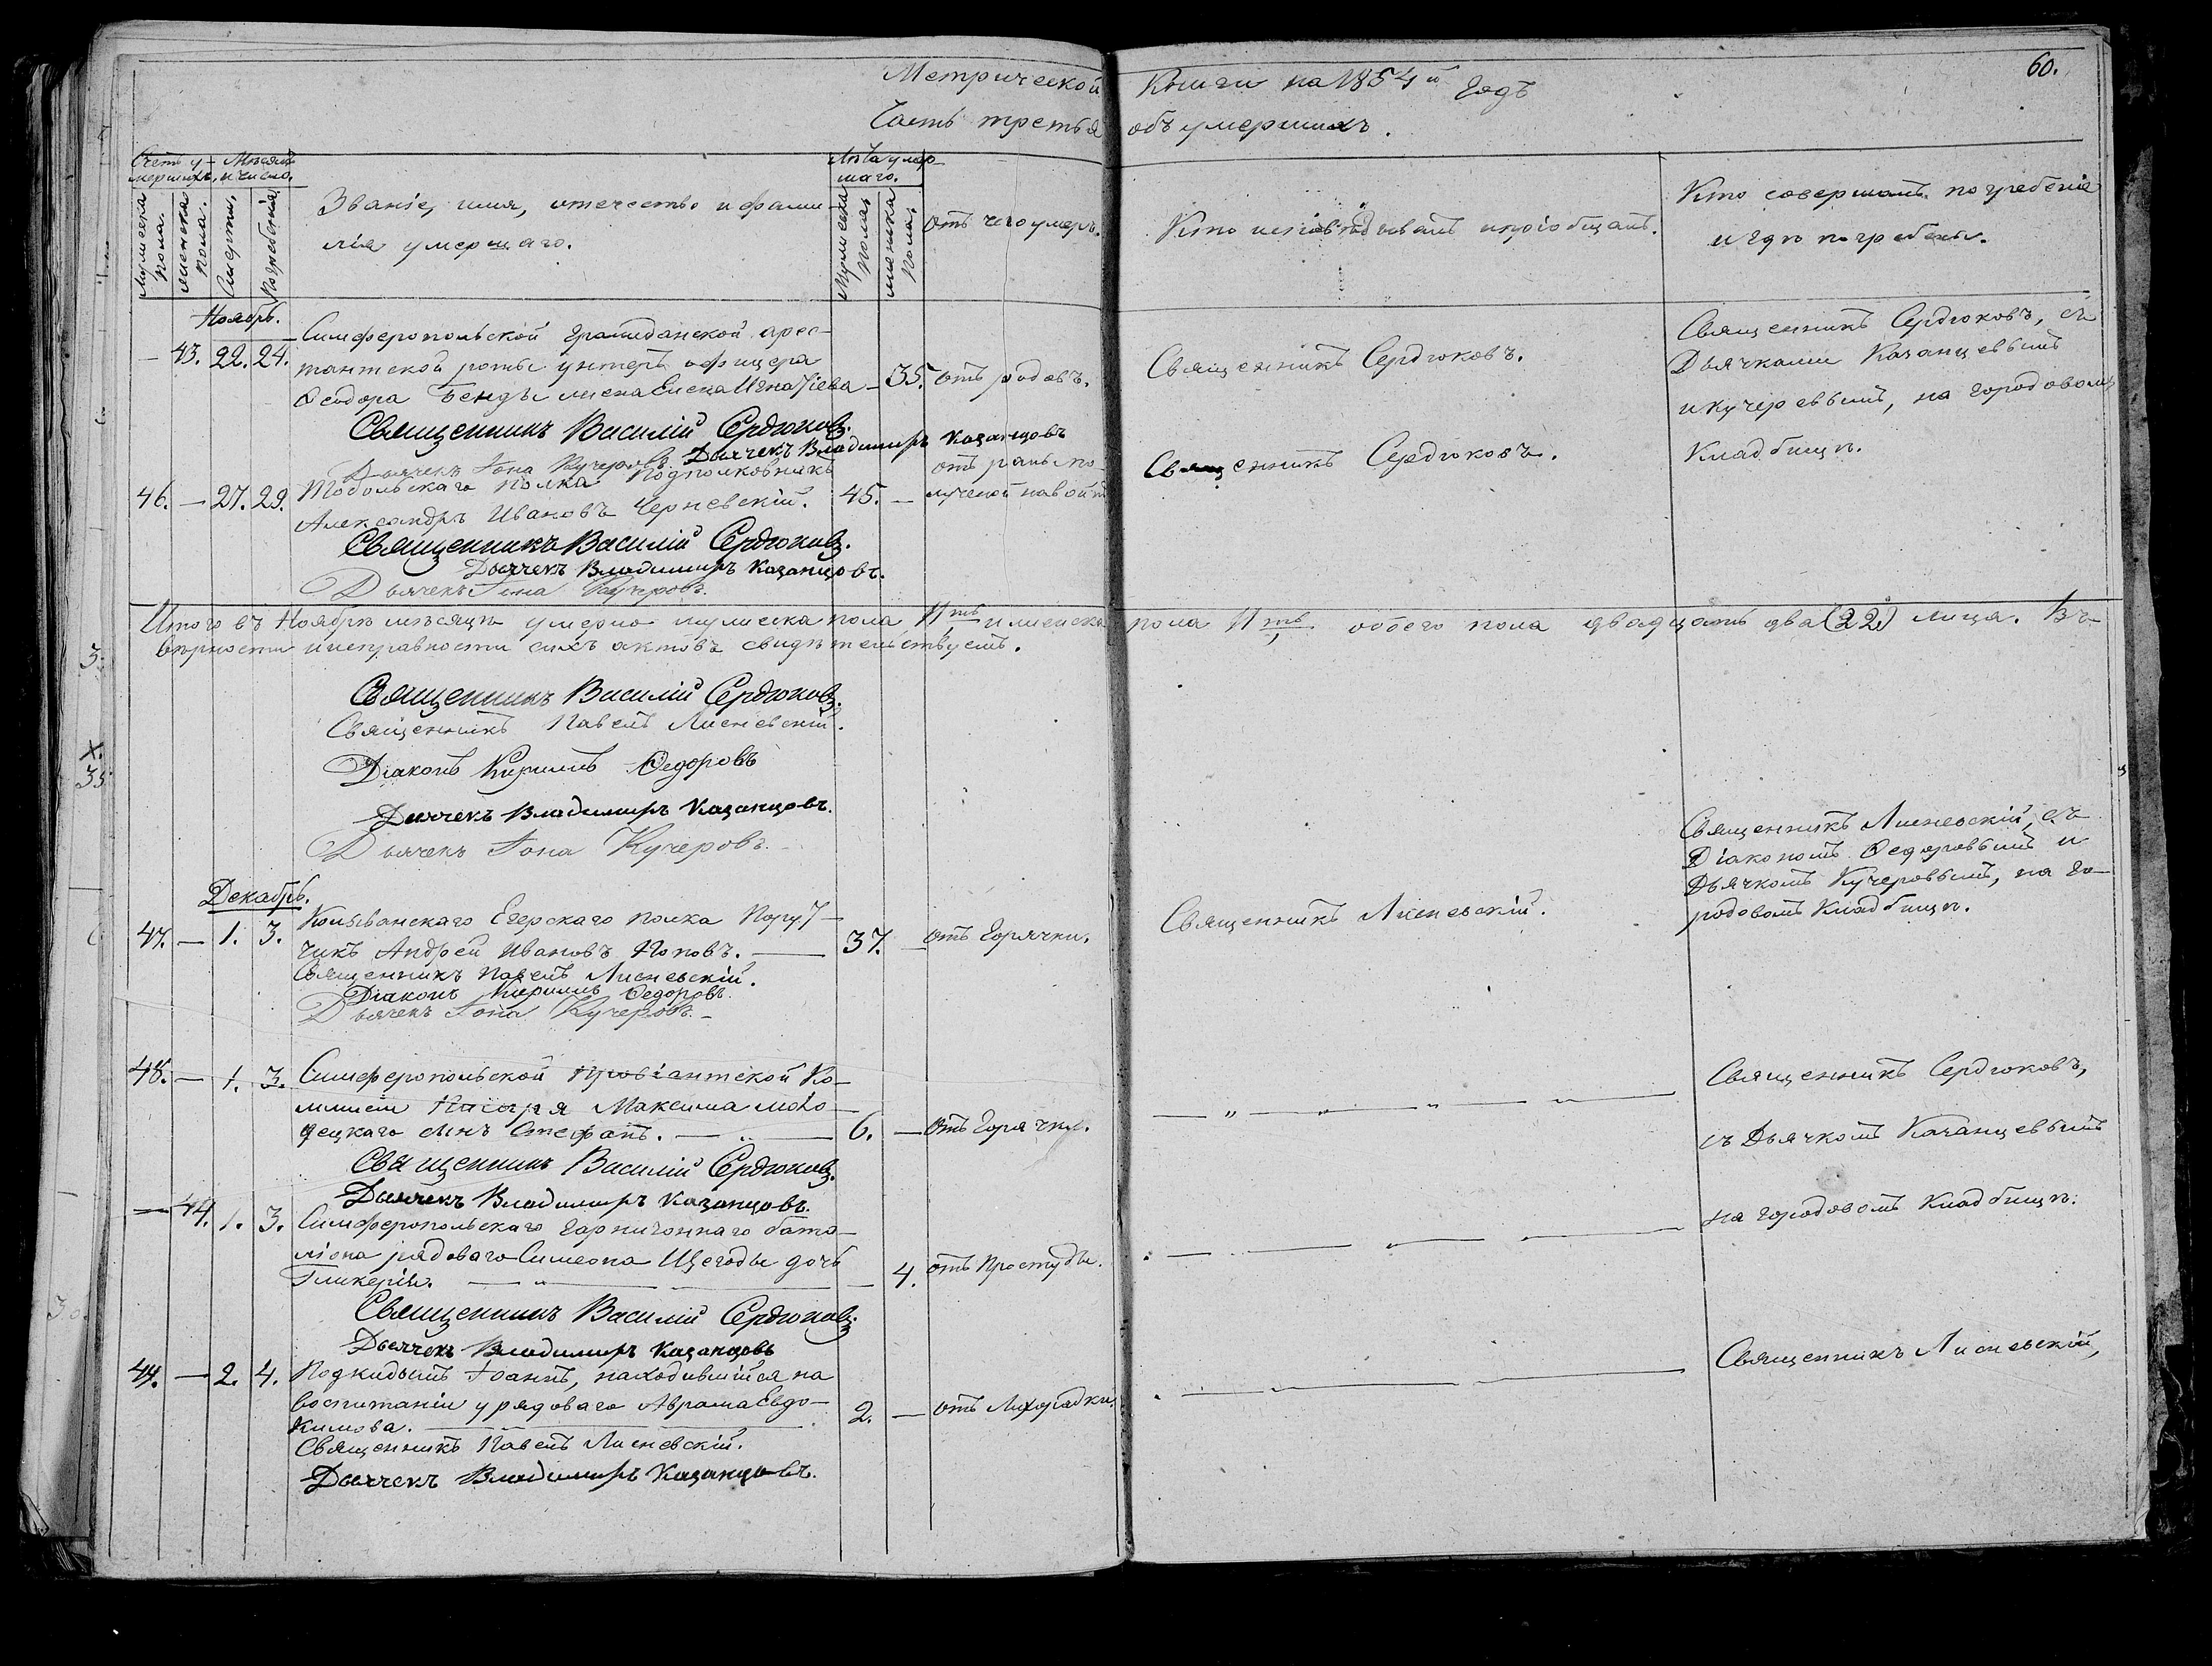 60.
Метрической Книги на 1854й Годъ
Часть третья объ умершихъ.
Счетъ умершихъ.
Мѣсяцъ и число.
Мужеска пола.
женска пола.
Смерти.
Погребенія.
Званіе, имя, отечество и фами-
лія умершаго.
Лѣта умер-
шаго.
Мужеска пола
женска пола.
Отъ чего умеръ.
Кто исповѣдывалъ и пріобщалъ.
Кто совершалъ погребеніе
и гдѣ погребены.
Ноябрь.
— 43. 22. 24.
Симферопольской Гражданской арес-
тантской роты унтеръ офицера
Ѳеодора Бенды жена Елена Игнатіева — 35. отъ родовъ.
Священникъ Сердюковъ.
Священникъ Сердюковъ, съ
Дьячками Казанцевымъ
и Кучеровымъ, на городовомъ
Кладбищѣ.
Священникъ Василій Сердюковъ.
Дьячекъ Владимиръ Казанцовъ
Дьячекъ Іона Кучеровъ.
46. — 27. 29.
Тобольскаго полка Подполковникъ
Александръ Ивановъ Черневскій. 45. —
отъ раны по-
лученой на войнѣ
Священникъ Сердюковъ.
Священникъ Василій Сердюковъ.
Дьячекъ Владимиръ Казанцовъ.
Дьячекъ Іона Кучеровъ.
Итого въ Ноябрѣ мѣсяцѣ умерло мужеска пола 11ть и женска пола 11ть, обоего пола двадцать два (22) лица. Въ
вѣрности и исправности сихъ актовъ свидѣтельствуемъ.
Священникъ Василій Сердюковъ.
Священникъ Павелъ Лисневскій.
Діаконъ Кириллъ Ѳедоровъ
Дьячекъ Владимиръ Казанцовъ.
Дьячекъ Іона Кучеровъ.
Декабрь.
47. — 1. 3.
Колыванскаго Егерскаго полка Пору-
чикъ Андрей Ивановъ Поповъ. — 37. — отъ Горячки.
Священникъ Лисневскій.
Священникъ Лисневскій, съ
Діакономъ Ѳедоровымъ и
Дьячкомъ Кучеровымъ, на го-
родовомъ Кладбищѣ.
Священникъ Павелъ Лисневскій.
Діаконъ Кириллъ Ѳедоровъ.
Дьячекъ Іона Кучеровъ.
48. — 1. 3.
Симферопольской Провіантской Ко-
миссіи Писаря Максима Моло-
децкаго сынъ Стефанъ. — „ — 6. — отъ Горячки.
— „ — „ — „ — „ —
Священникъ Сердюковъ,
съ Дьячкомъ Казанцевымъ
на городовомъ Кладбищѣ.
Священникъ Василій Сердюковъ.
Дьячекъ Владимиръ Казанцовъ.
— 44. 1. 3.
Симферопольскаго гарнизоннаго бата-
ліона рядоваго Симеона Щегоды дочь
Гликерія. — „ — 4. отъ Простуды.
Священникъ Василій Сердюковъ.
Дьячекъ Владимиръ Казанцовъ
44. — 2. 4.
Подкидышъ Іоаннъ, находившійся на
воспитаніи у рядоваго Аврама Евдо-
кимова. — 2. — отъ Лихорадки.
Священникъ Лисневскій,
Священникъ Павелъ Лисневскій.
Дьячекъ Владимиръ Казанцовъ.